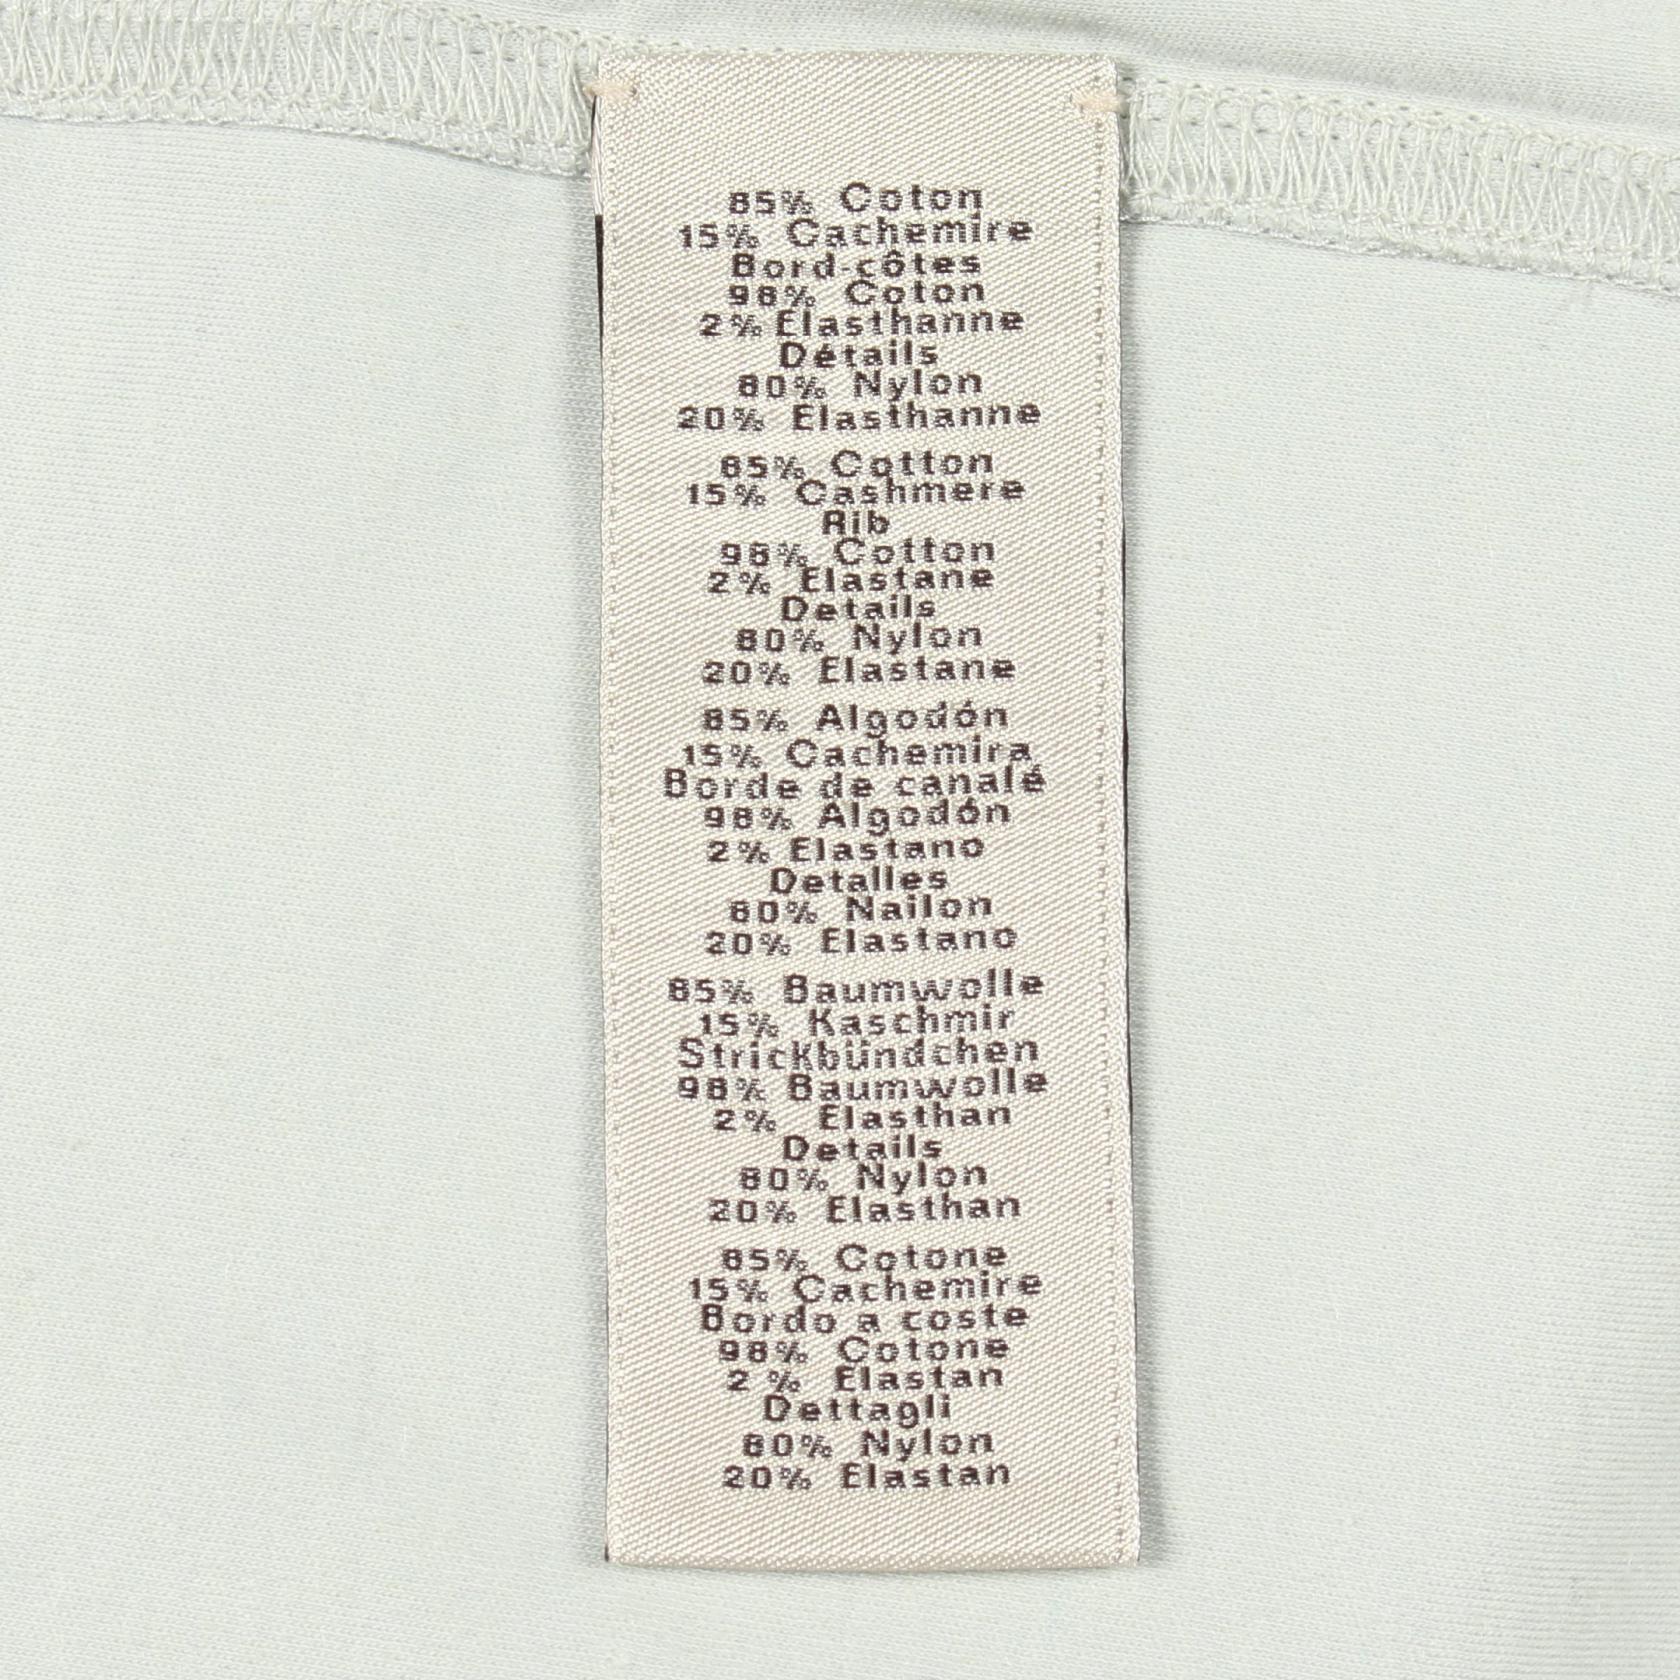 85% Coton
15% Cachemire
Bord-côtes
98% Coton
2% Elasthanne
Détails
80% Nylon
20% Elasthanne
85% Cotton
15% Cashmere
Rib
98% Cotton
2% Elastane
Details
80% Nylon
20% Elastane
85% Algodón
15% Cachemira
Borde de canalé
98% Algodón
2% Elastano
Detalles
80% Nailon
20% Elastano
85% Baumwolle
15% Kaschmir
Strickbündchen
98% Baumwolle
2% Elasthan
Details
80% Nylon
20% Elasthan
85% Cotone
15% Cachemire
Bordo a coste
98% Cotone
2 % Elastan
Dettagli
80% Nylon
20% Elastan